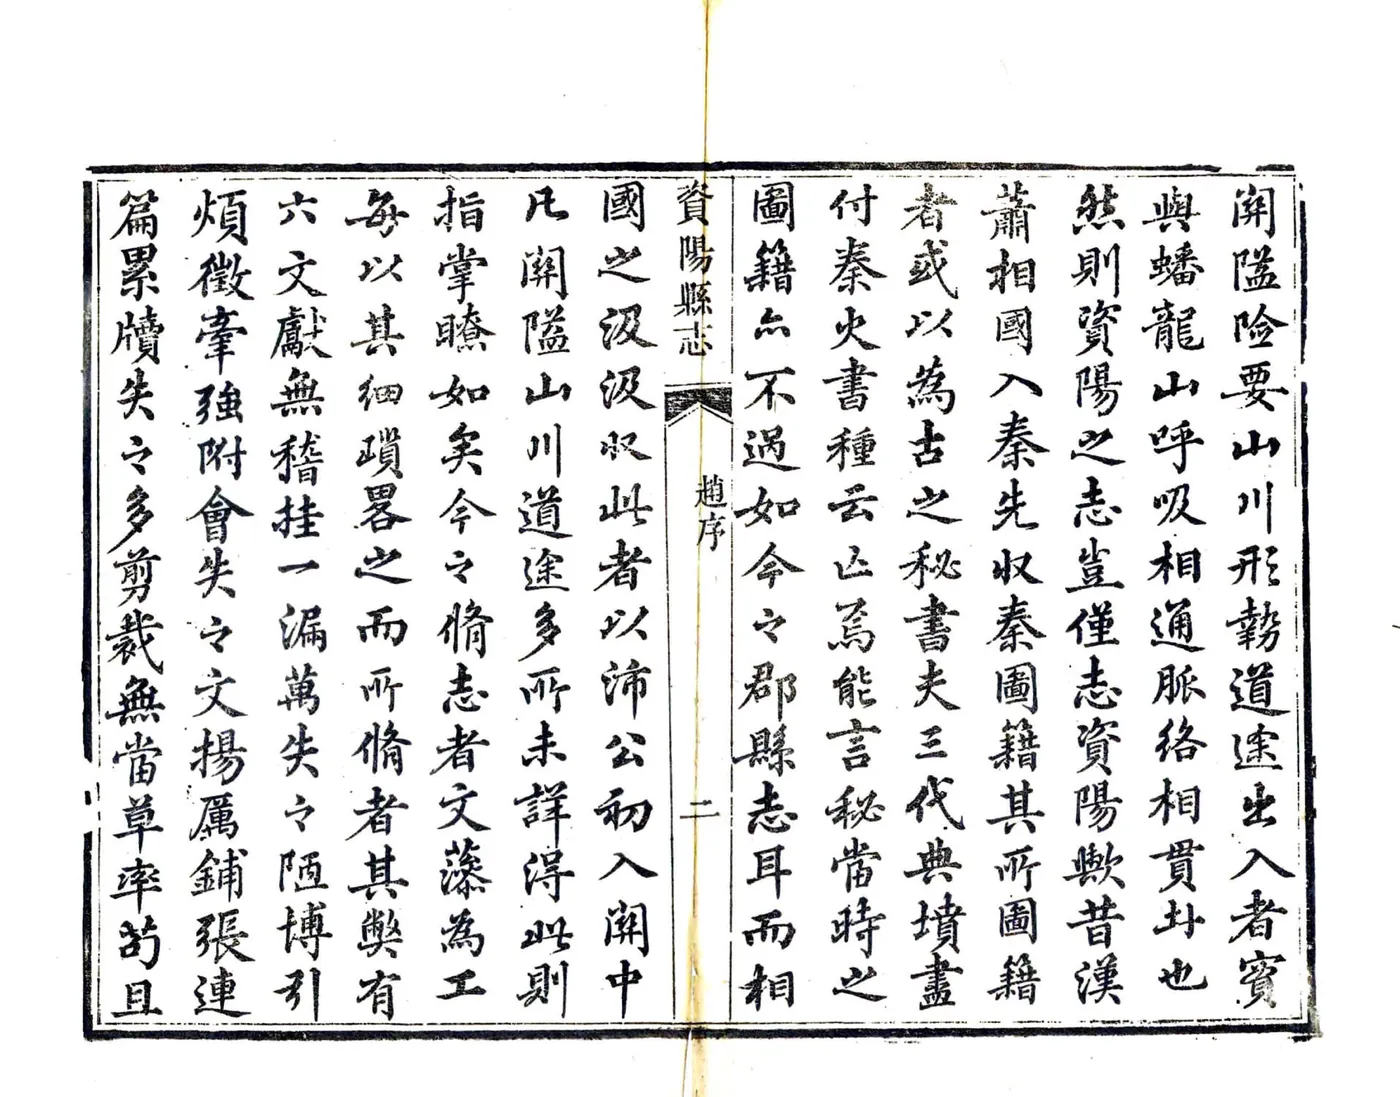 關隘險要山川形勢道途出入者賓
與蟠龍山呼吸相通脈絡相貫斗也
然則資陽之志豈僅志資陽歟昔漢
蕭相國入秦先収秦圖籍其所圖籍
者或以為古之秘書夫三代典墳盡
付秦火書種云亡焉能言秘當時之
圖籍亦不過如今之郡縣志耳而相
資陽縣志
趙序
二
國之汲汲収此者以沛公初入關中
凡關隘山川道途多所未詳得此則
指掌瞭如矣今之脩志者文藻為工
每以其細瑣畧之而所脩者其獘有
六文獻無稽挂一漏萬失之陋博引
煩徵牽強附會失之文揚厲鋪張連
篇累牘失之多剪裁無當草率苟且